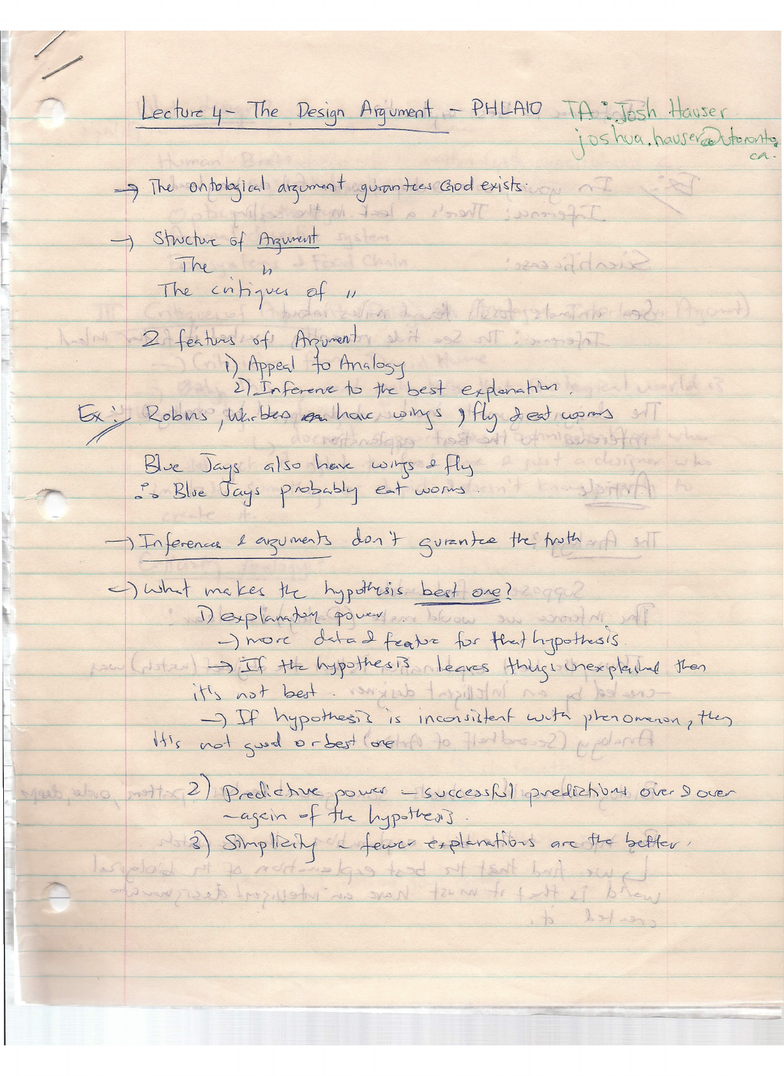 Lecture 4 - The Design Argument - PHLA10 TA: Josh Hauser
joshua.hauser@utoronto.
ca.
→ The ontological argument gurantees God exists.
→ Structure of Argument
The "
The critiques of "
2 features of Argument
1) Appeal to Analogy
2) Inference to the best explanation.
Ex: Robins, have wings, fly & eat worms
Blue Jays also have wings & fly
∴ Blue Jays probably eat worms
→ Inferences & arguments don't gurantee the truth
→ What makes the hypothesis best one?
1) explanatory power
→ more data & feature for that hypothesis
→ If the hypothesis leaves things unexplained then
it's not best.
→ If hypothesis is inconsistent with phenomenon, then
it's not good or best one
2) Predictive power - successful predictions over & over
again of the hypothesis.
3) Simplicity - fewer explanations are the better.